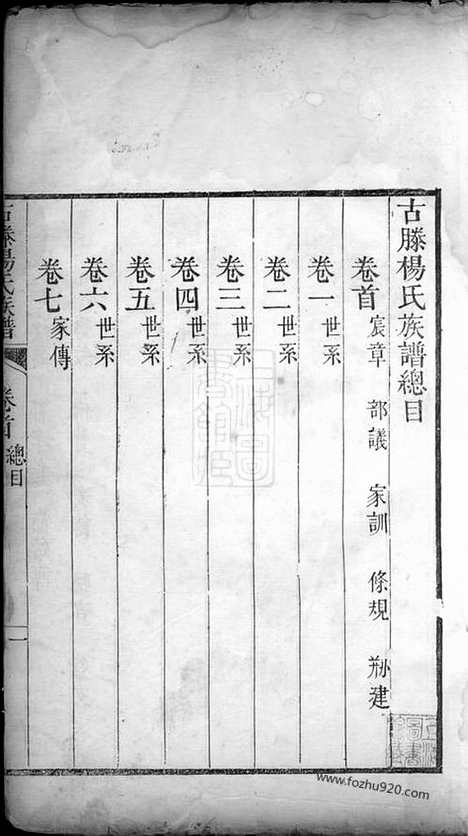 古滕楊氏族譜總目
卷首 宸章 部議 家訓 條規 刱建
卷一 世系
卷二 世系
卷三 世系
卷四 世系
卷五 世系
卷六 世系
卷七 家傳
古滕楊氏族譜 卷首 總目 一
www.fozhu920.com